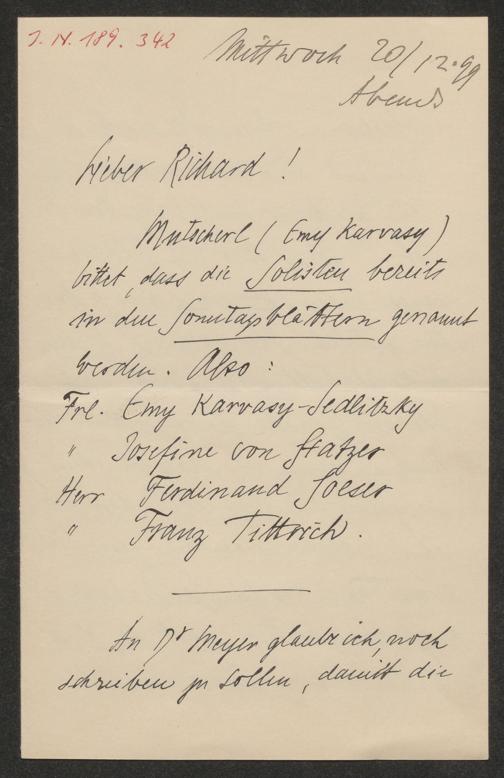 I. N. 189.342
Mittwoch 20/12.99
Abends
Lieber Richard!
Mutscherl (Emy Karvasy)
bittet, dass die Solisten bereits
in den Sonntagsblättern genannt
werden. Also:
Frl. Emy Karvasy-Sedlitzky
" Josefine von Statzer
Herr Ferdinand Soeser
" Franz Tittrich.
An Dr Meyer glaube ich, noch
schreiben zu sollen, damit die